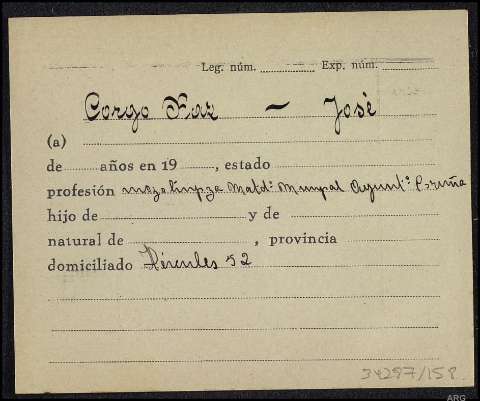 Leg. núm. Exp. núm.
Corgo Faz — José
(a)
de años en 19 , estado
profesión mozo limpza Matdº Munpal Ayuntº Coruña
hijo de y de
natural de , provincia
domiciliado Hércules 52
34297/158
ARG